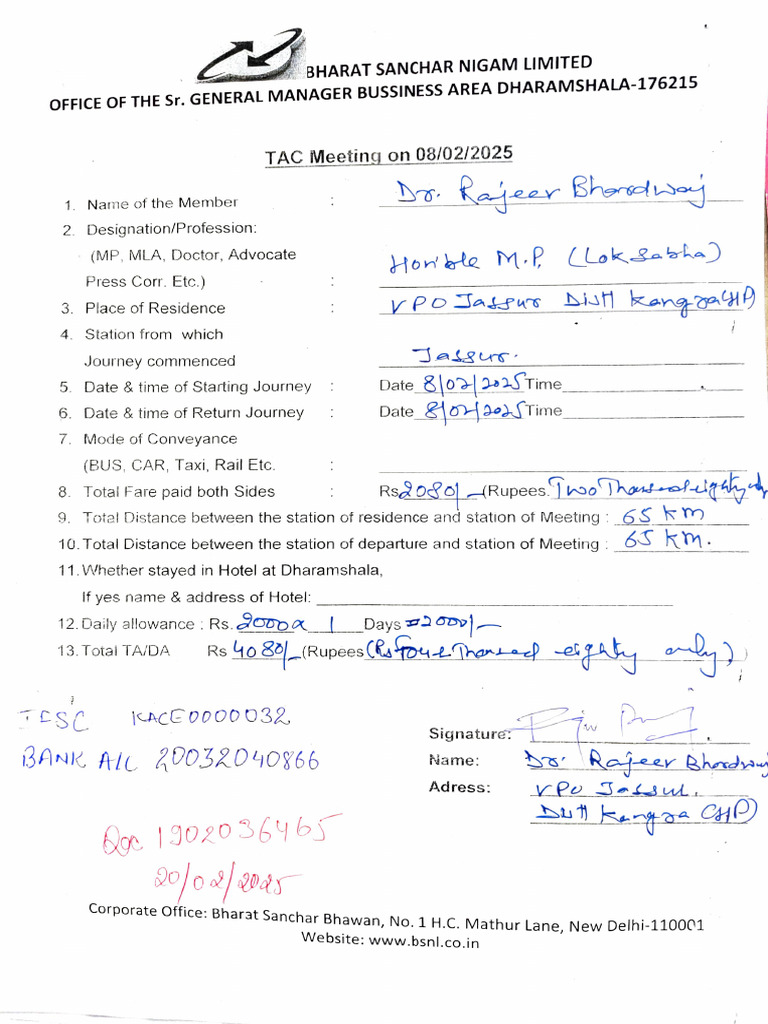 BHARAT SANCHAR NIGAM LIMITED
OFFICE OF THE Sr. GENERAL MANAGER BUSSINESS AREA DHARAMSHALA-176215
TAC Meeting on 08/02/2025
1. Name of the Member : Dr. Rajeev Bhardwaj
2. Designation/Profession:
(MP, MLA, Doctor, Advocate Hon'ble M.P. (Lok Sabha)
Press Corr. Etc.) :
3. Place of Residence : VPO Jassur Distt Kangra (HP)
4. Station from which
Journey commenced Jassur.
5. Date & time of Starting Journey : Date 8/02/2025 Time
6. Date & time of Return Journey : Date 8/02/2025 Time
7. Mode of Conveyance
(BUS, CAR, Taxi, Rail Etc. :
8. Total Fare paid both Sides : Rs 2080/- (Rupees Two Thousand eighty only
9. Total Distance between the station of residence and station of Meeting : 65 KM
10. Total Distance between the station of departure and station of Meeting : 65 KM.
11. Whether stayed in Hotel at Dharamshala,
If yes name & address of Hotel:
12. Daily allowance : Rs. 2000 x 1 Days = 2000/-
13. Total TA/DA Rs 4080/- (Rupees (Rs Four Thousand eighty only)
IFSC KACE0000032
BANK A/C 20032040866
Signature:
Name: Dr. Rajeev Bhardwaj
Adress: VPO Jassur.
Distt Kangra (HP)
Doc 1902036465
20/02/2025
Corporate Office: Bharat Sanchar Bhawan, No. 1 H.C. Mathur Lane, New Delhi-110001
Website: www.bsnl.co.in